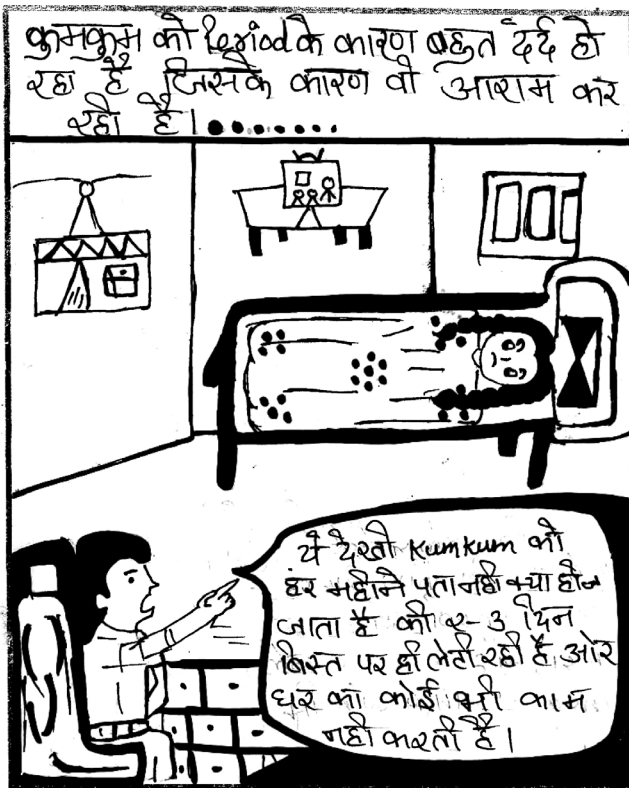 कुमकुम को Period के कारण बहुत दर्द हो
रहा है जिसके कारण वो आराम कर
रही है।........
ये देखो Kumkum को
हर महीने पता नही क्या होज
जाता है की २-३ दिन
बिस्त पर ही लेटी रही है ओर
घर का कोई भी काम
नही करती है।